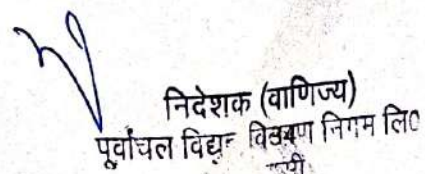 निदेशक (वाणिज्य)
पूर्वांचल विद्युत वितरण निगम लि०